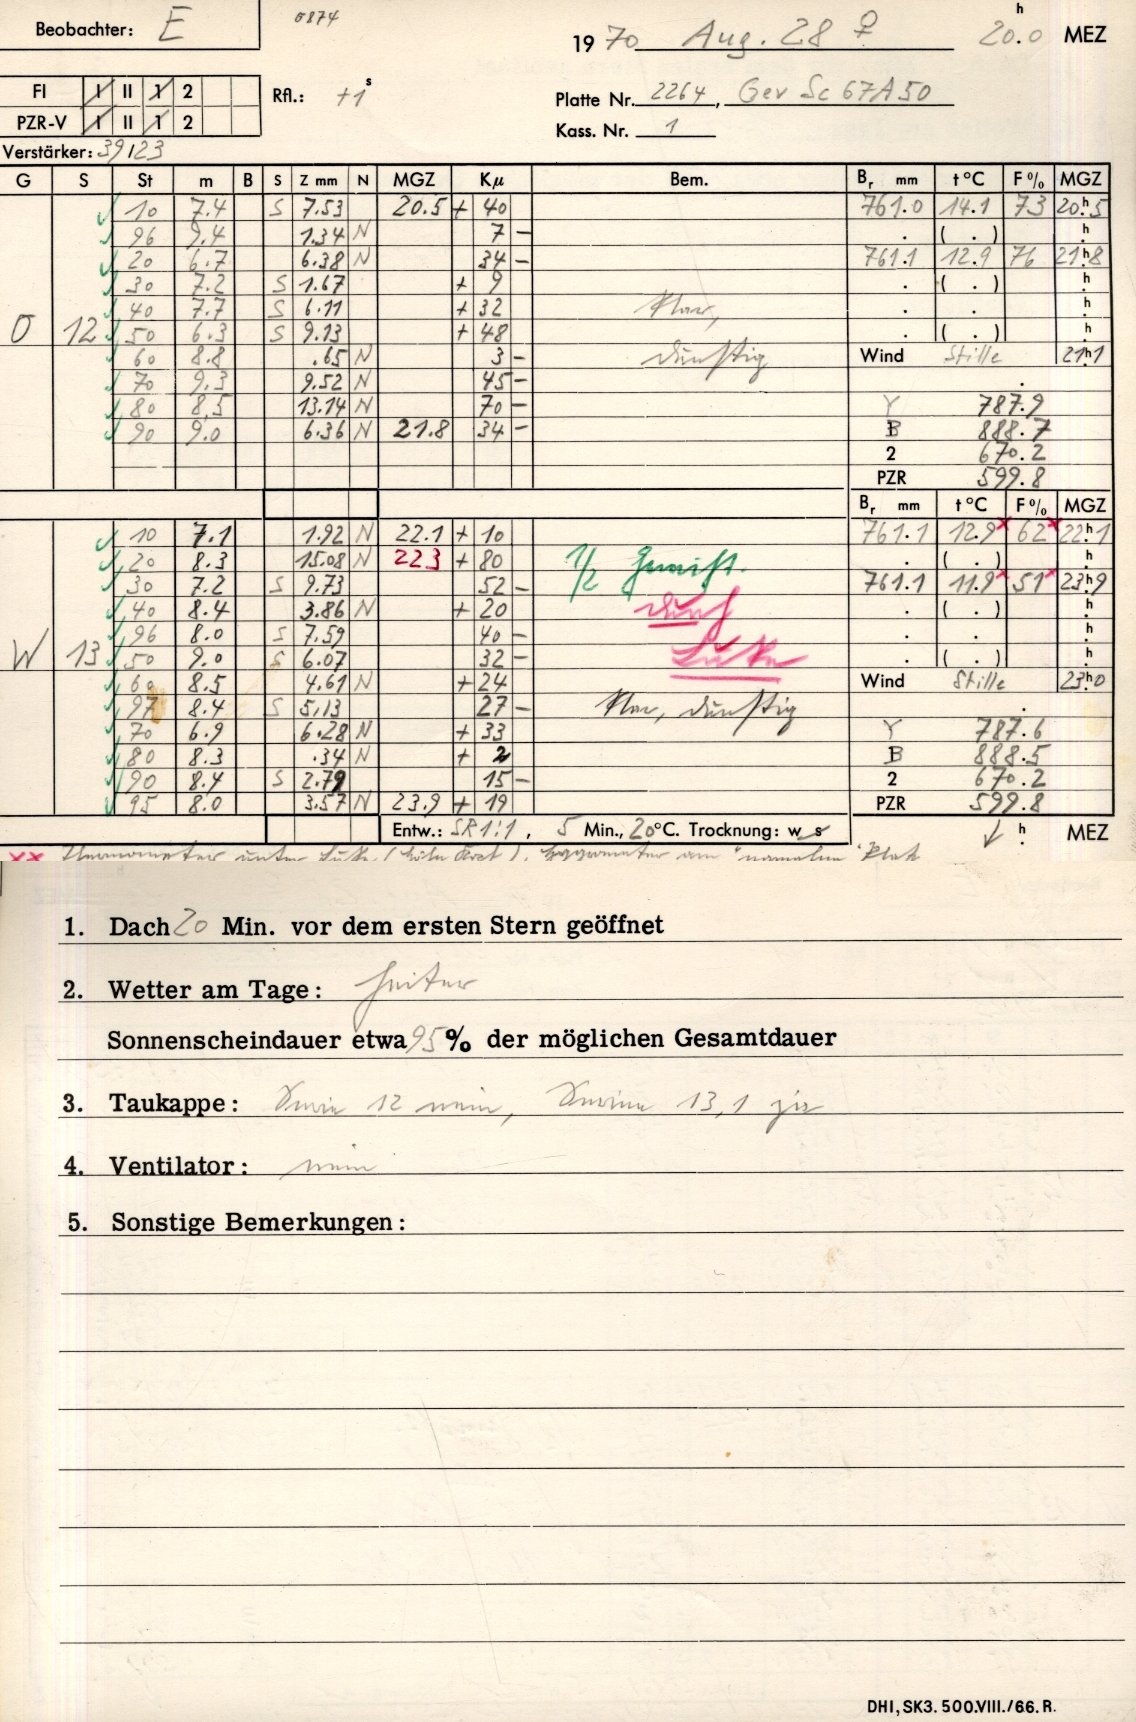 Beobachter: E 0874
1970 Aug. 28 ♀ 20.0 h MEZ
FI I II 1 2 Rfl.: +1 s
Platte Nr. 2264, Gev Sc 67A50
PZR-V I II 1 2
Kass. Nr. 1
Verstärker: 39/23
G S St m B S Z mm N MGZ Kμ Bem. Br mm t °C F % MGZ
10 7.4 S 7.53 20.5 + 40 761.0 14.1 73 20h5
96 9.4 1.34 N 7 – . ( . ) h
20 6.7 6.38 N 34 – 761.1 12.9 76 21h8
30 7.2 S 1.67 + 9 . ( . ) h
40 7.7 S 6.11 + 32 klar, . . h
O 12 50 6.3 S 9.13 + 48 . ( . ) h
60 8.8 .65 N 3 – dunstig Wind Stille 21h1
70 9.3 9.52 N 45 – .
80 8.5 13.14 N 70 – Y 787.9
90 9.0 6.36 N 21.8 34 – B 888.7
2 670.2
PZR 599.8
Br mm t °C F % MGZ
10 7.1 1.92 N 22.1 + 10 761.1 12.9x 62x 22h1
20 8.3 15.08 N 22.3 + 80 1/2 Gewicht. . ( . ) h
30 7.2 S 9.73 52 – 761.1 11.9x 51x 23h9
40 8.4 3.86 N + 20 durch . ( . ) h
96 8.0 S 7.59 40 – . . h
W 13 50 9.0 S 6.07 32 – Luke . ( . ) h
60 8.5 4.61 N + 24 Wind Stille 23h0
97 8.4 S 5.13 27 – klar, dunstig .
70 6.9 6.28 N + 33 Y 787.6
80 8.3 .34 N + 2 B 888.5
90 8.4 S 2.79 15 – 2 670.2
95 8.0 3.57 N 23.9 + 19 PZR 599.8
Entw.: SR 1:1, 5 Min., 20°C. Trocknung: w s h MEZ
xx Thermometer unter Luke ( ), Hygrometer am "normalen" Platz
1. Dach 20 Min. vor dem ersten Stern geöffnet
2. Wetter am Tage: heiter
Sonnenscheindauer etwa 95 % der möglichen Gesamtdauer
3. Taukappe: Serie 12 nein, Serien 13, 1 ja
4. Ventilator: nein
5. Sonstige Bemerkungen:
DHI, SK3. 500.VIII./66. R.